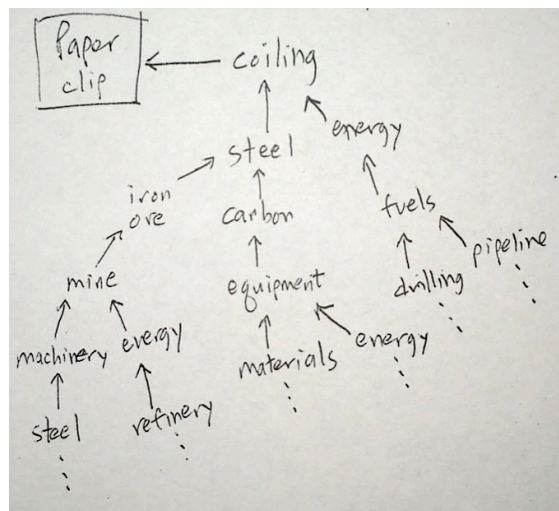 Paper
clip
coiling
energy
steel
iron
ore
carbon
fuels
pipeline
mine
equipment
drilling
machinery
energy
materials
energy
steel
refinery